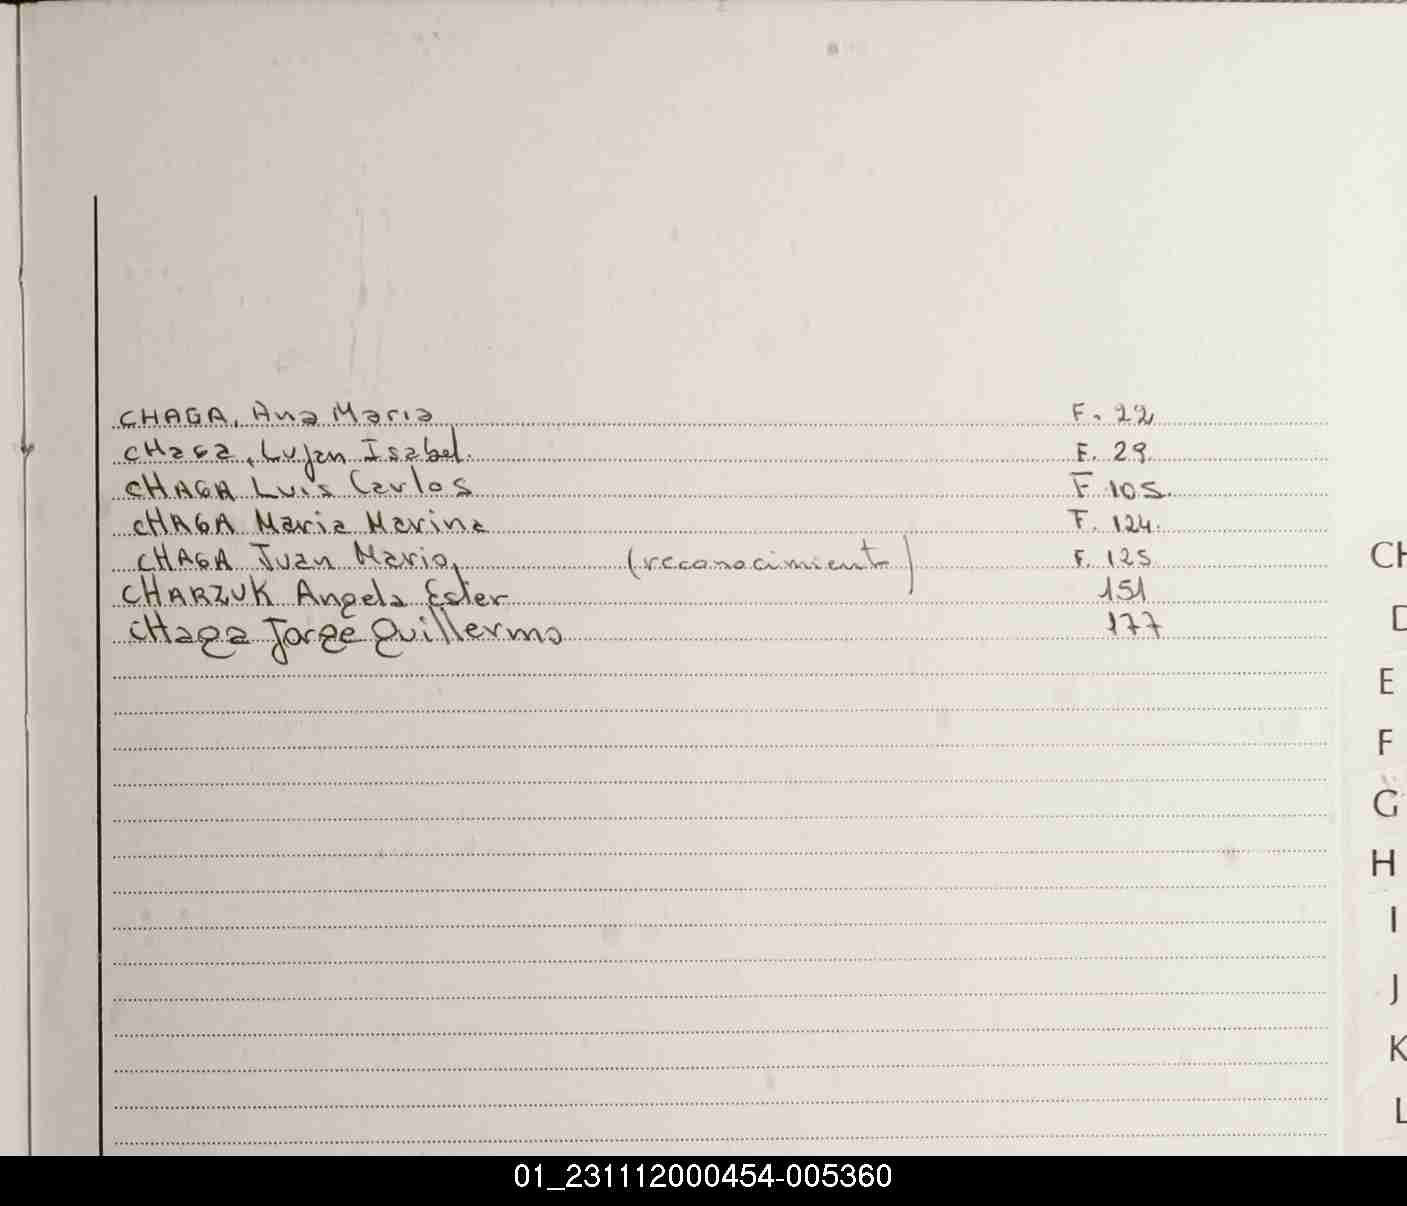 CHAGA, Ana Maria F. 22
CHaga, Lujan Isabel. F. 29.
CHAGA Luis Carlos F 105.
CHAGA Maria Marina F. 124.
CHAGA Juan Mario, (reconocimiento) F. 125
CHARZUK Angela Ester 151
CHaga Jorge Guillermo 177
CH
D
E
F
G
H
I
J
K
L
01_231112000454-005360